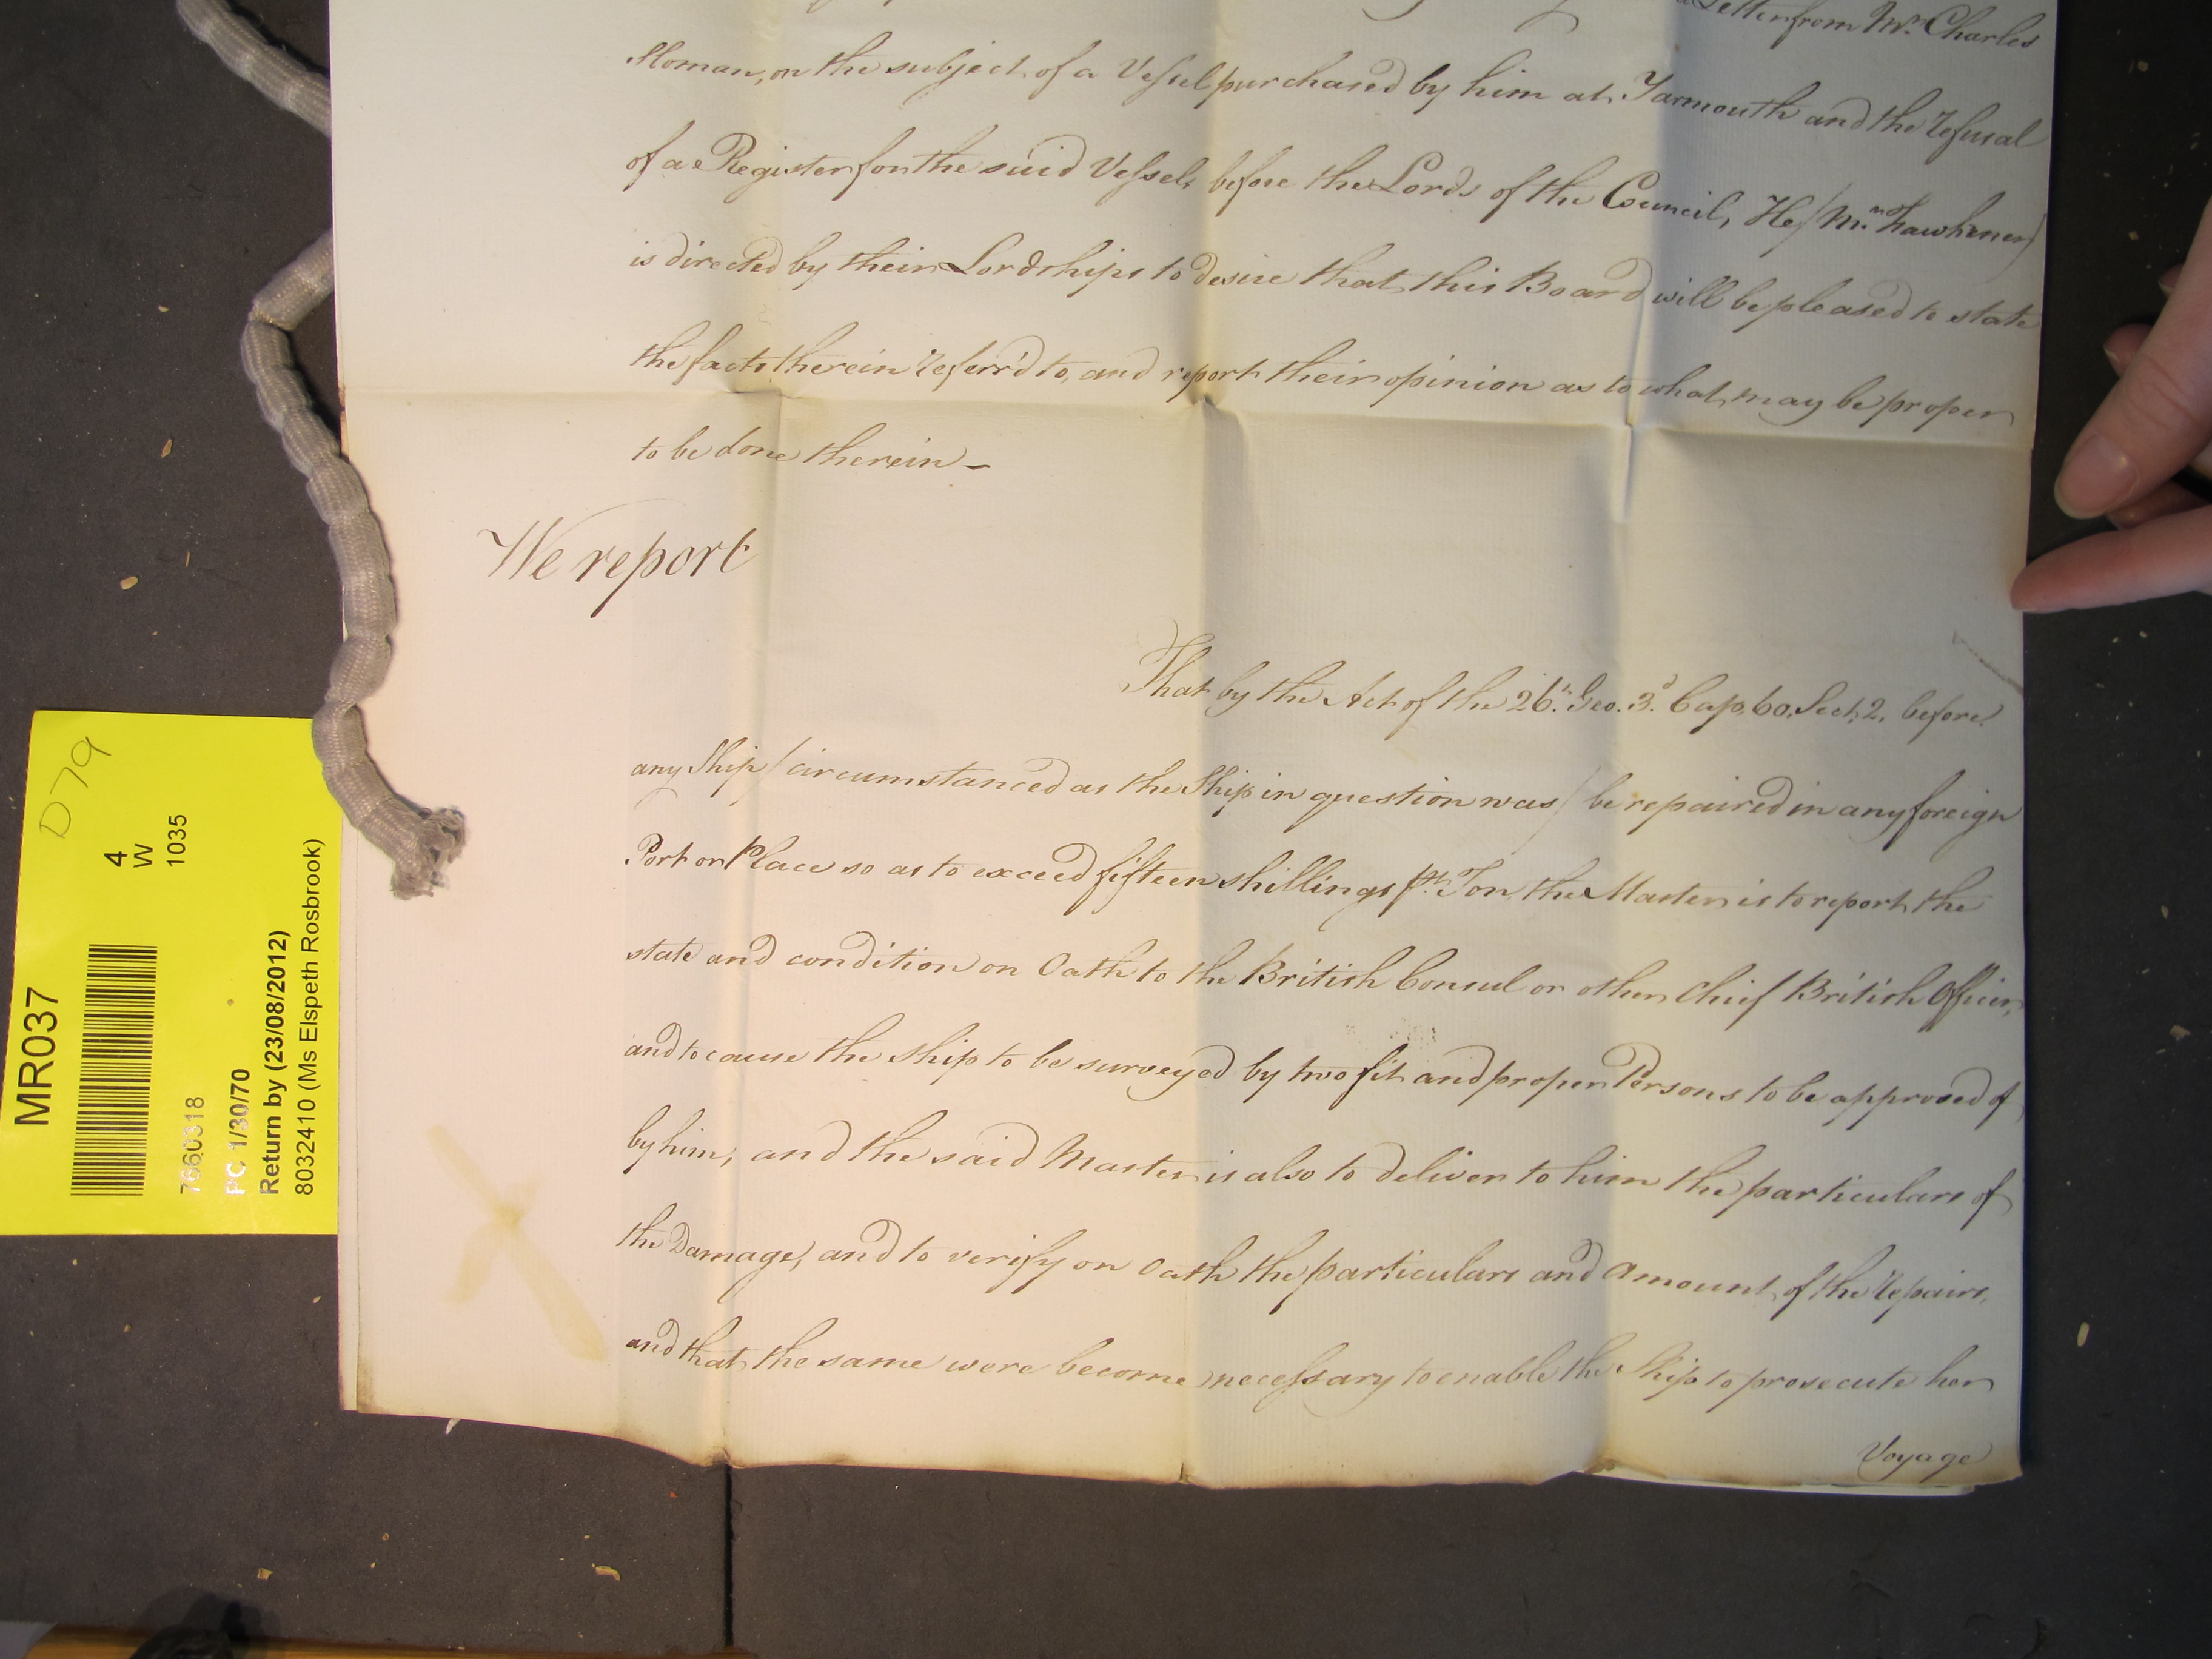 a Letter from Mr. Charles
Homan, on the subject of a Vessel purchased by him at Yarmouth and the refusal
of a Register for the said Vessel, before the Lords of the Council, He /Mr. Fawkener/
is directed by their Lordships to desire that this Board will be pleased to state
the facts therein referr'd to, and report their opinion as to what may be proper
to be done therein —
We report
That by the Act of the 26th. Geo. 3d. Cap. 60. Sect. 2. before
any Ship / circumstanced as the Ship in question was / be repaired in any foreign
Port or Place so as to exceed fifteen shillings pr. Ton, the Master is to report the
state and condition on Oath to the British Consul or other Chief British Officer,
and to cause the Ship to be surveyed by two fit and proper Persons to be approved of
by him, and the said Master is also to deliver to him the particulars of
the Damage, and to verify on Oath the particulars and amount of the repairs,
and that the same were become necessary to enable the Ship to prosecute her
Voyage
D79
4
W
1035
MR037
7660318
PC 1/30/70
Return by (23/08/2012)
8032410 (Ms Elspeth Rosbrook)